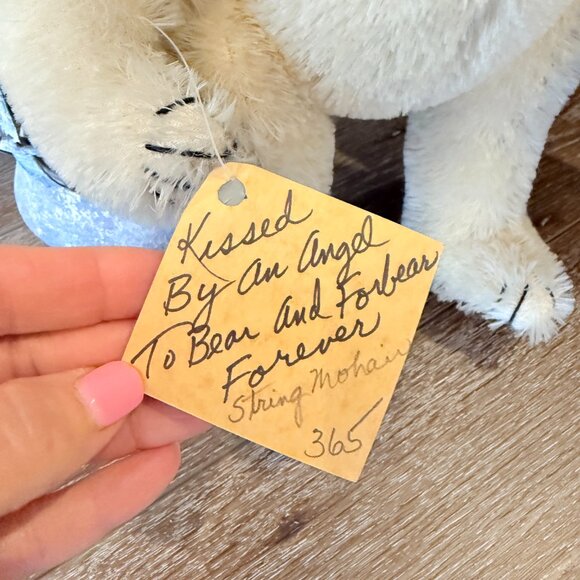 Kissed
By An Angel
To Bear And Forbear
Forever
String Mohair
365